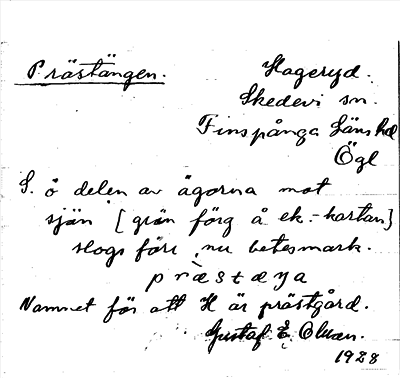 Prästängen.
Hageryd.
Skedevi sn.
Finspånga Läns hd
Ögl
S. ö delen av ägorna mot
sjön [grön färg å ek.-kartan]
slogs förr, nu betesmark.
præstæŋa
Namnet för att H är prästgård.
Gustaf E. Olsson.
1928